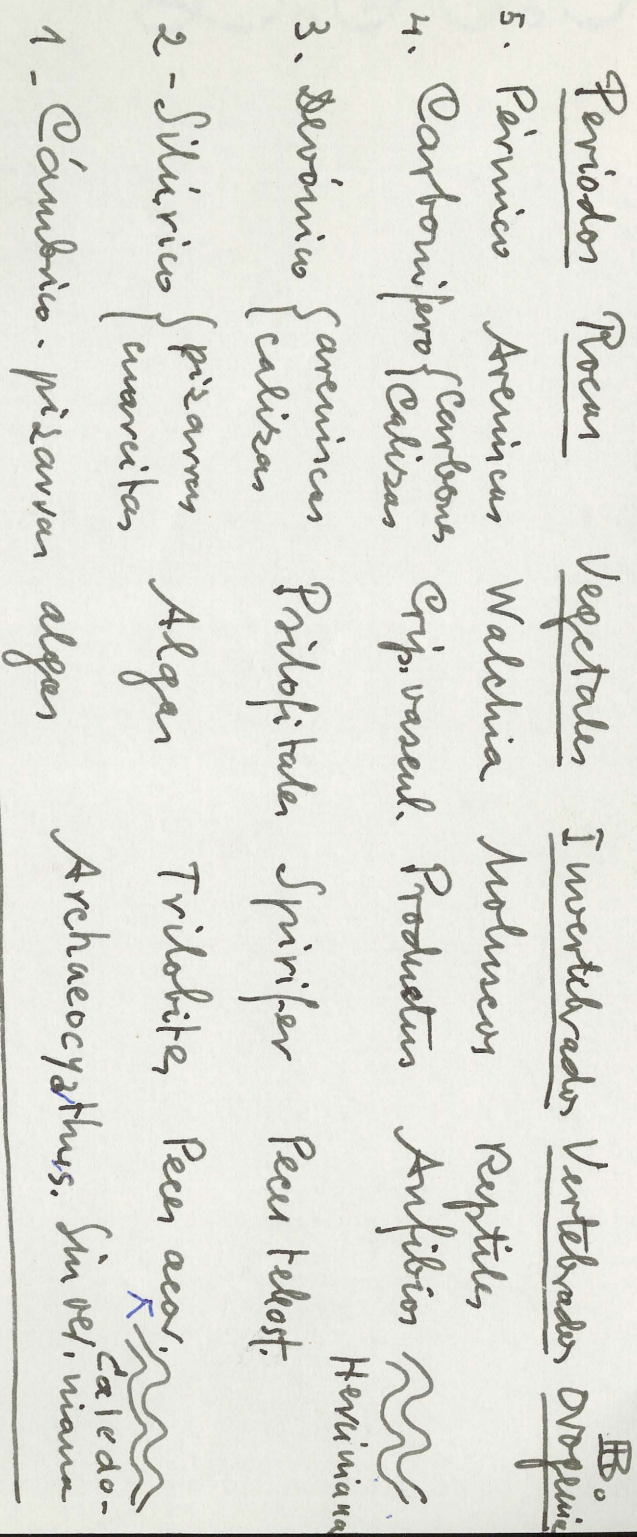 Periodos Rocas Vegetales Invertebrados Vertebrados Orogenia
5. Pérmico Areniscas Walchia Moluscos Reptiles
4. Carbonífero { Carbones Calizas Crip. vascul. Productus Anfibios Herciniana
3. Devónico { areniscas calizas Psilofitales Spirifer Peces teleost.
2 - Silúrico { pizarras cuarcitas Algas Trilobites Peces acor.
1 - Cámbrico. pizarras algas Archaeocyathus. Sin ver. Caledoniana